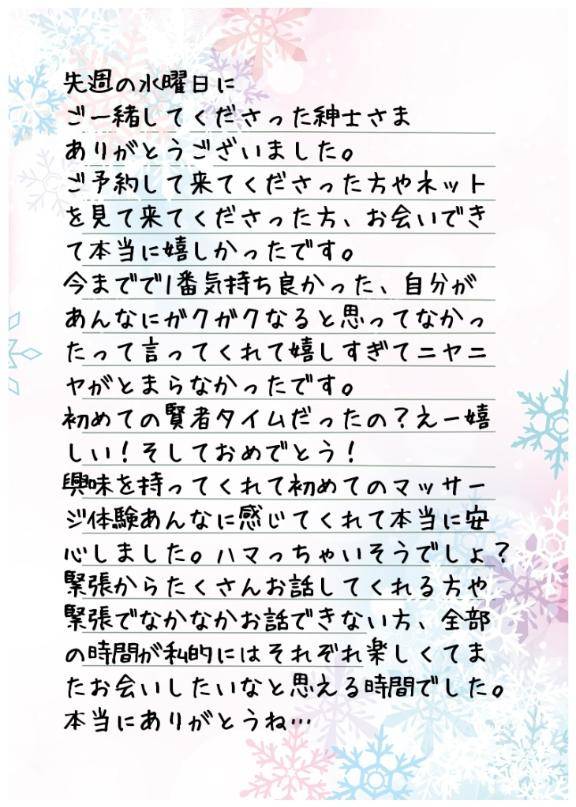 先週の水曜日に
ご一緒してくださった紳士さま
ありがとうございました。
ご予約して来てくださった方やネット
を見て来てくださった方、お会いでき
て本当に嬉しかったです。
今までで1番気持ち良かった、自分が
あんなにガクガクなると思ってなかっ
たって言ってくれて嬉しすぎてニヤニ
ヤがとまらなかったです。
初めての賢者タイムだったの?えー嬉
しい!そしておめでとう!
興味を持ってくれて初めてのマッサー
ジ体験あんなに感じてくれて本当に安
心しました。ハマっちゃいそうでしょ?
緊張からたくさんお話してくれる方や
緊張でなかなかお話できない方、全部
の時間が私的にはそれぞれ楽しくてま
たお会いしたいなと思える時間でした。
本当にありがとうね…